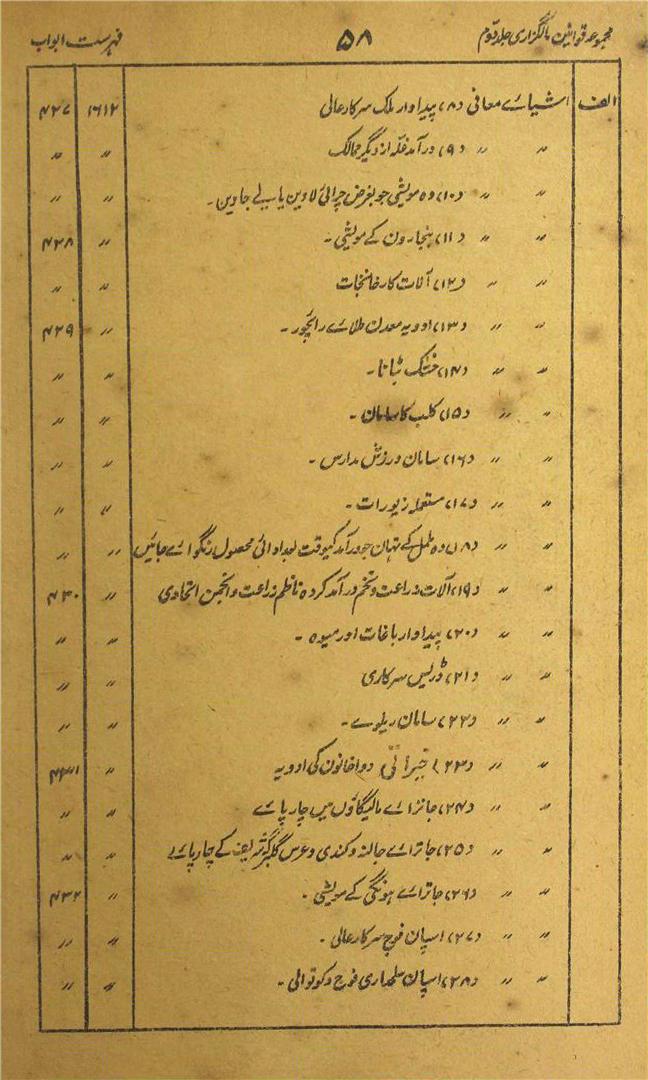 مجموعہ قوانین مالگزاری جلد دوم ۵۸ فہرست ابواب
الف اشیائے معافی (۸) پیداوار ملک سرکار عالی ۱۶۱۲ ۴۲۷
〃 〃 (۹) درآمد غلہ از دیگر ممالک 〃 〃
〃 〃 (۱۰) وہ مویشی جو بغرض چرائی لاوین یا لے جاوین۔ 〃 〃
〃 〃 (۱۱) بنجارون کے مویشی۔ 〃 ۴۲۸
〃 〃 (۱۲) آلات کارخانجات 〃 〃
〃 〃 (۱۳) ادویہ معدن طلائے رائچور۔ 〃 ۴۲۹
〃 〃 (۱۴) خشک ٹپانا۔ 〃 〃
〃 〃 (۱۵) کلب کا سامان۔ 〃 〃
〃 〃 (۱۶) سامان ورزش مدارس۔ 〃 〃
〃 〃 (۱۷) مستعملہ زیورات۔ 〃 〃
〃 〃 (۱۸) وہ ململ کے تہان جو درآمد کیوقت بعد ادائی محصول رنگوائے جائیں 〃 〃
〃 〃 (۱۹) آلات زراعت و تخم درآمد کردہ ناظم زراعت و انجمن اتحادی 〃 ۴۳۰
〃 〃 (۲۰) پیداوار باغات اور میوہ۔ 〃 〃
〃 〃 (۲۱) ڈریس سرکاری 〃 〃
〃 〃 (۲۲) سامان ریلوے۔ 〃 〃
〃 〃 (۲۳) خیراتی دواخانون کی ادویہ 〃 ۴۳۱
〃 〃 (۲۴) جاترائے مالیگاؤں میں چارپائے 〃 〃
〃 〃 (۲۵) جاترائے جالنہ و کندی و عرس گلبرگہ شریف کے چارپائے 〃 〃
〃 〃 (۲۶) جاترائے ہونگی کے مویشی۔ 〃 ۴۳۲
〃 〃 (۲۷) اسپان فوج سرکار عالی۔ 〃 〃
〃 〃 (۲۸) اسپان سلحداری فوج و کوتوالی۔ 〃 〃